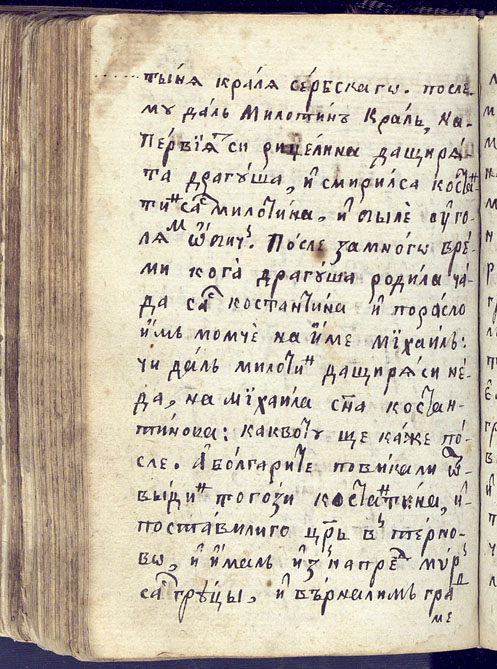 тыня краля сербскагω. после
му даль Милотинъ краль, на
Первїѧтси рицелина дащирѧ
та драгꙋша, и смирилса костанъ
тинъ сасъ милотина, и было ѹго
лѧмъ ѿбичъ. После замногω вре
ми кога драгꙋша родила ча
да сасъ костантина и порасло
имъ момче на име мїхаилъ.
чи даль милотинъ дащирѧси не
да, на мїхаила сн҃а костан
тинова: каквоту ще каже по
сле. А болгарите повикали ѿ
выдинъ тогози костанътина, и
поставилиго црь въ терно
вω, и ималъ изнапредъ миръ
сасъ гръцы, и върналимъ гра
ме